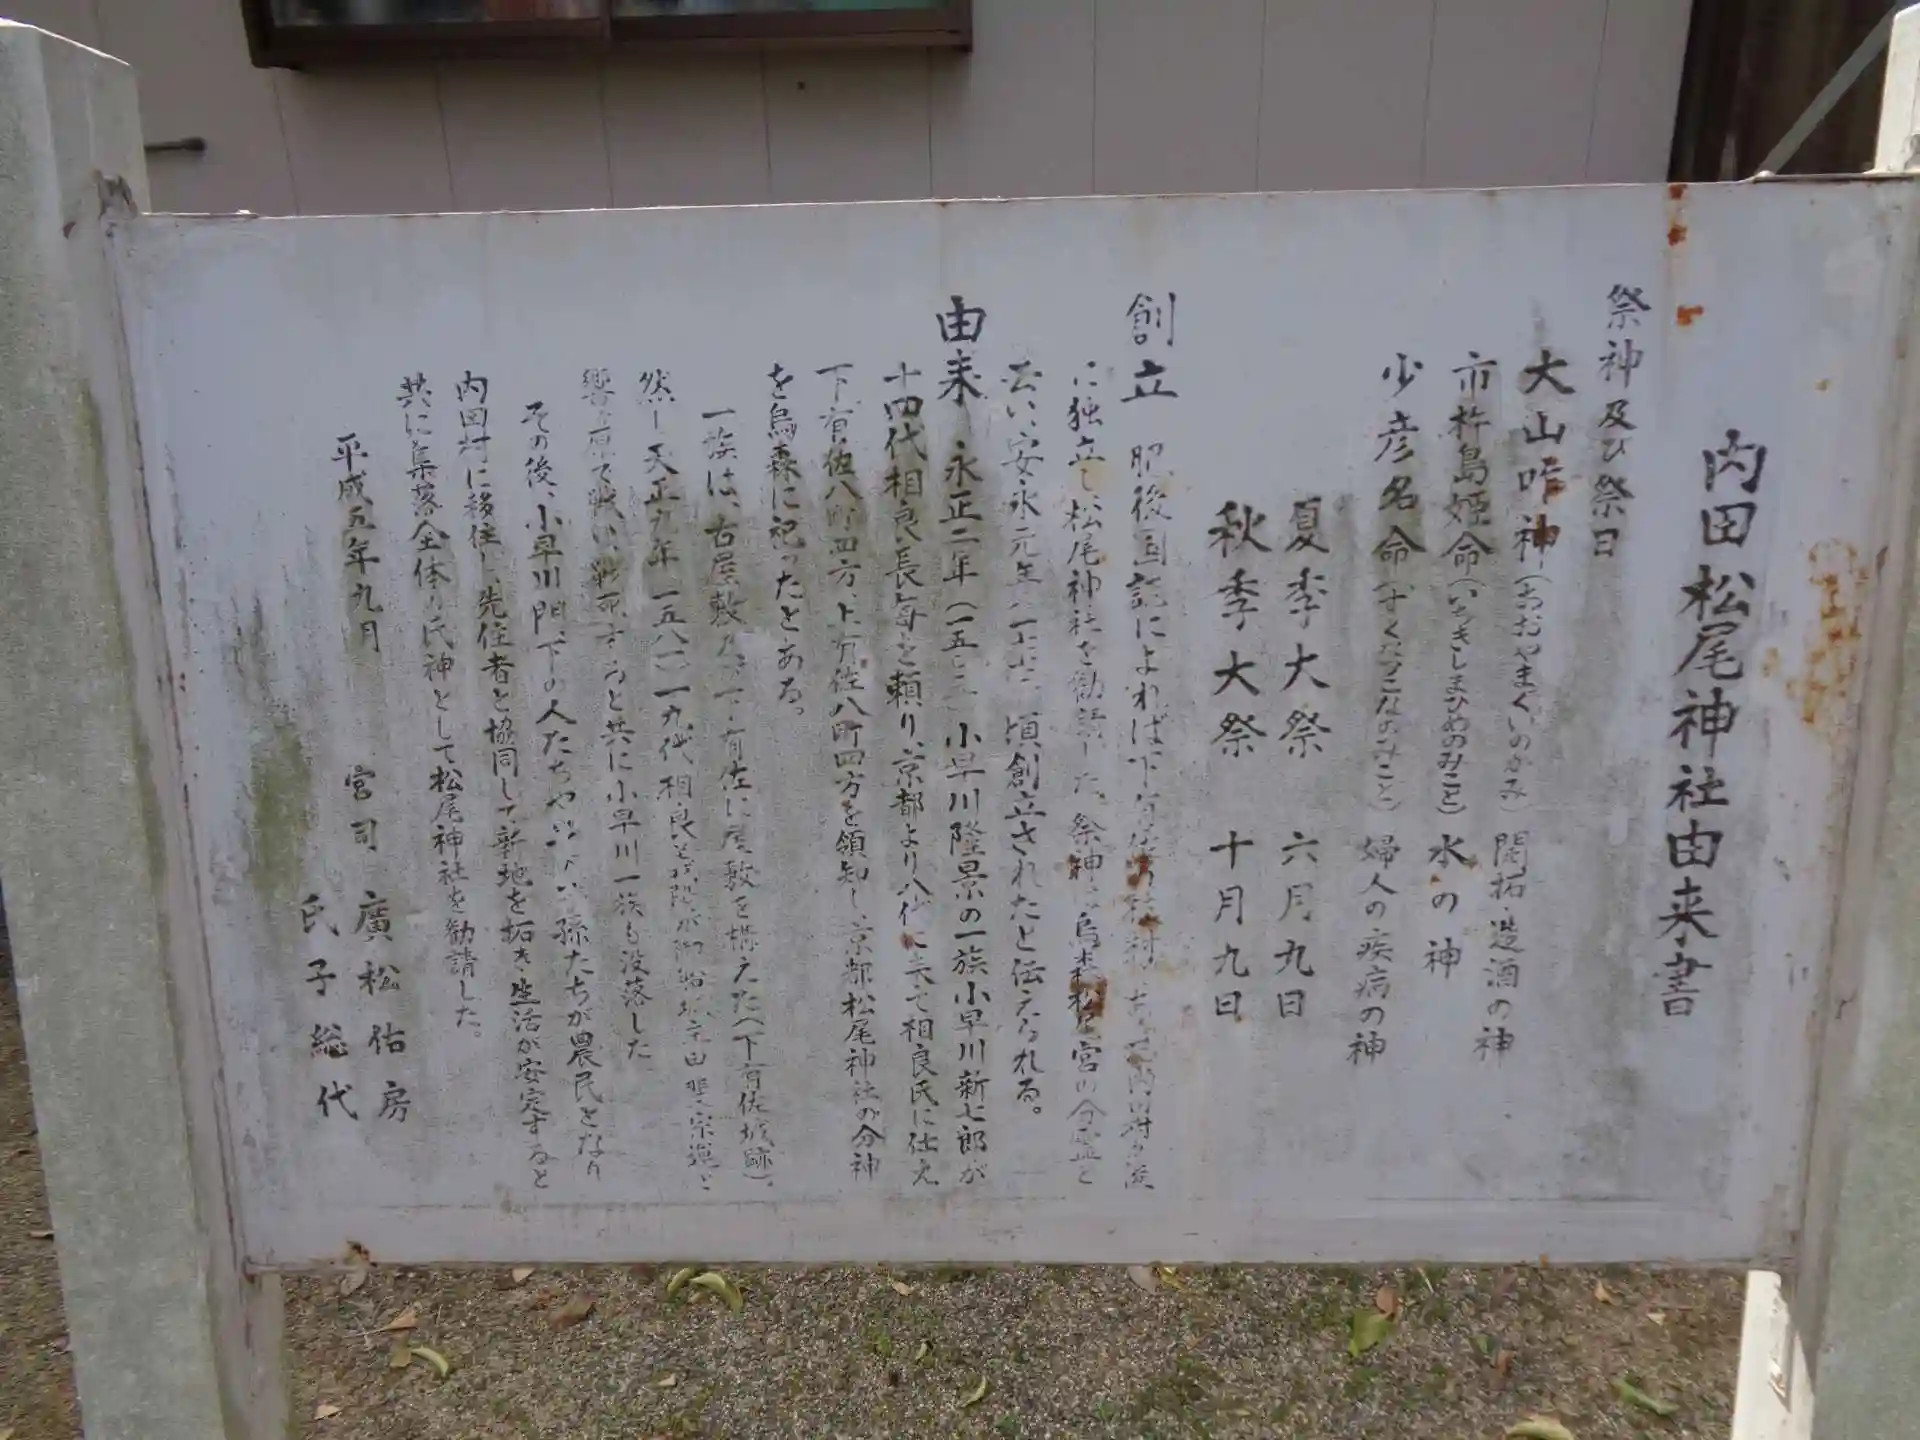 内田松尾神社由来書
祭神及び祭日
大山咋神(おおやまぐいのかみ) 開拓・造酒の神
市杵島姫命(いちきしまひめのみこと) 水の神
少彦名命(すくなひこなのみこと) 婦人の疾病の神
夏季大祭 六月九日
秋季大祭 十月九日
創立 肥後国誌によれば下有佐 内田村
に独立し松尾神社を勧請した。祭神は烏森松尾宮の分霊と
云い、安永元年 頃創立されたと伝えられる。
由来 永正二年(一五 小早川隆景の一族小早川新七郎が
十四代相良長毎を頼り、京都より八代に来て相良氏に仕え
下有佐八町四方、上有佐八町四方を領知し、京都松尾神社の分神
を烏森に祀ったとある。
一族は、古屋敷 下有佐に屋敷を構えた(下有佐城跡)。
然し天正九年 一五八一)一九代相良 宗運と
響ヶ原で戦い、戦死すると共に小早川一族も没落した
その後、小早川門下の人たちや 孫たちが農民となり
内田村に移住し、先住者と協同して新地を拓き生活が安定すると
共に集落全体の氏神として松尾神社を勧請した。
平成五年九月
宮司 廣松佑房
氏子総代